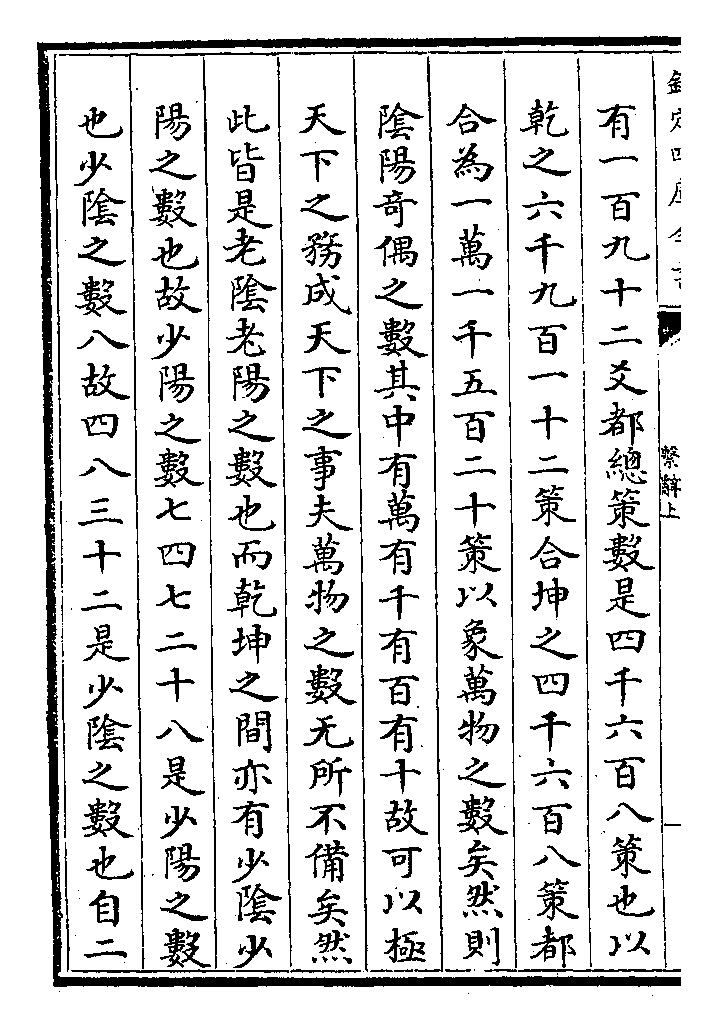 欽定四庫全書
繫辭上
有一百九十二爻都總策數是四千六百八策也以
乾之六千九百一十二策合坤之四千六百八策都
合為一萬一千五百二十策以象萬物之數矣然則
陰陽奇偶之數其中有萬有千有百有十故可以極
天下之務成天下之事夫萬物之數无所不備矣然
此皆是老陰老陽之數也而乾坤之間亦有少陰少
陽之數也故少陽之數七四七二十八是少陽之數
也少陰之數八故四八三十二是少陰之數也自二